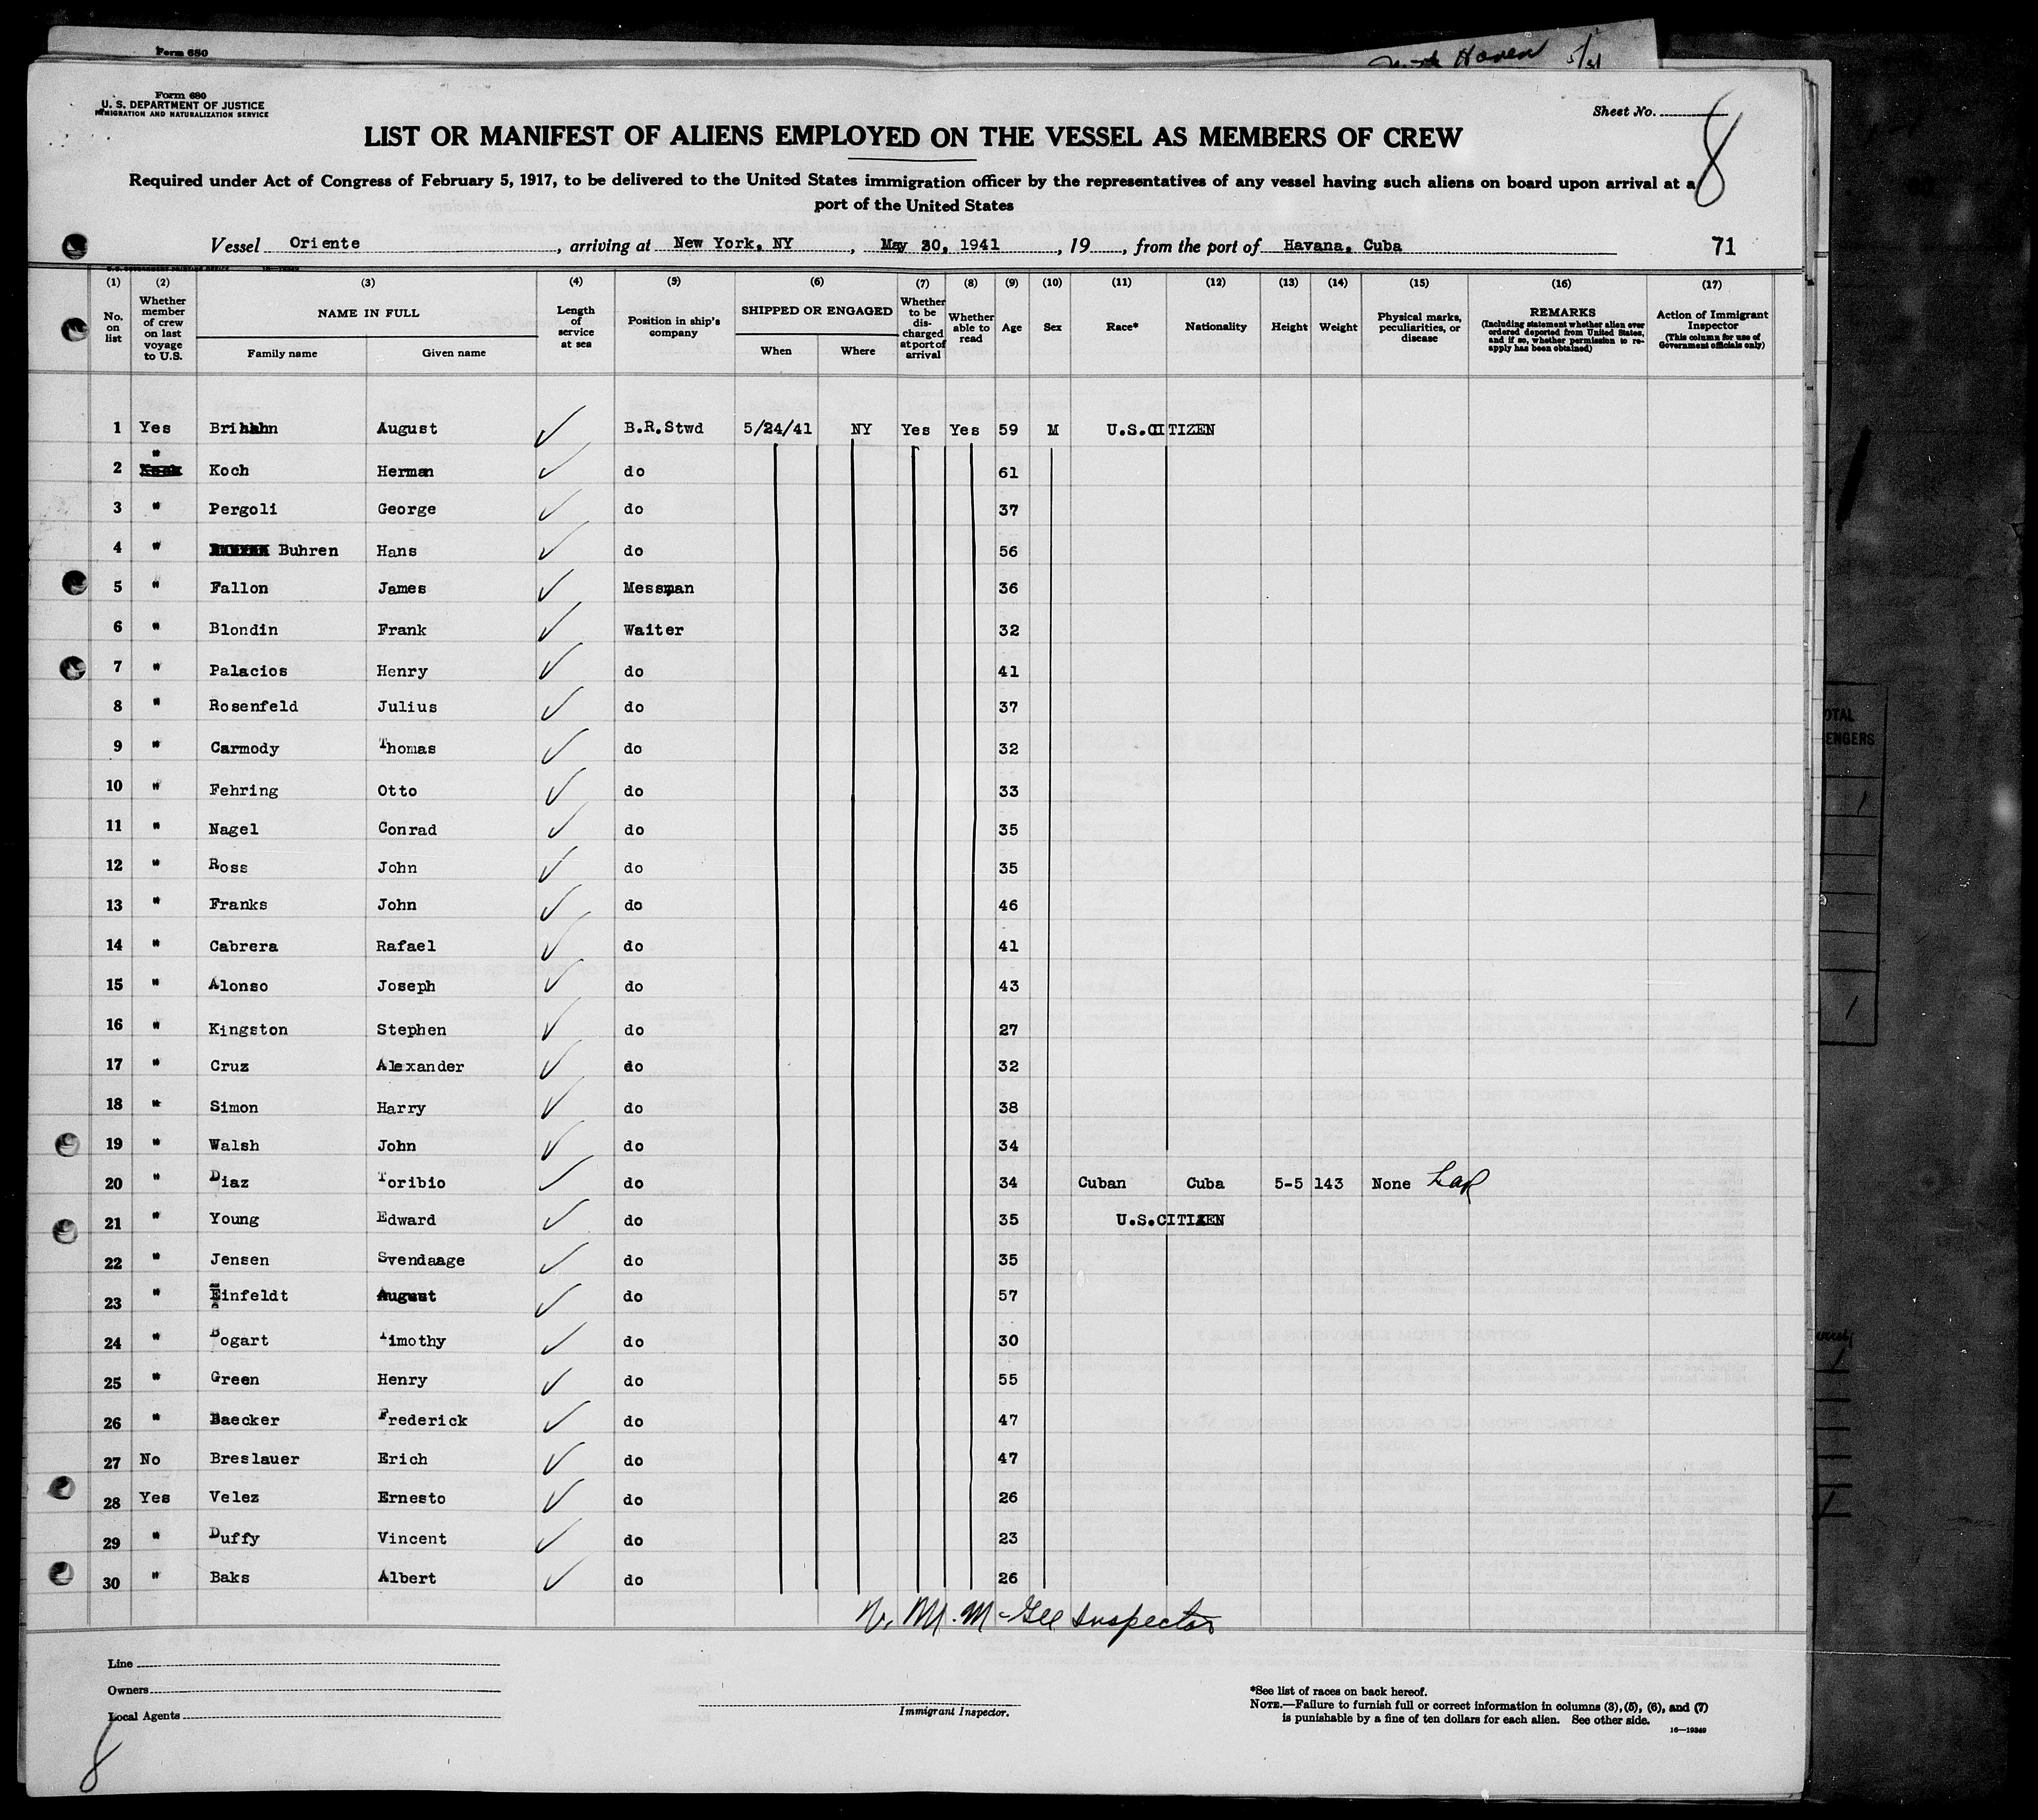 Form 680
Haven
Form 680
U. S. DEPARTMENT OF JUSTICE
IMMIGRATION AND NATURALIZATION SERVICE
Sheet No. 8
LIST OR MANIFEST OF ALIENS EMPLOYED ON THE VESSEL AS MEMBERS OF CREW
Required under Act of Congress of February 5, 1917, to be delivered to the United States immigration officer by the representatives of any vessel having such aliens on board upon arrival at a
port of the United States
Vessel Oriente, arriving at New York, NY, May 30, 1941, 19, from the port of Havana, Cuba 71
(1) (2) (3) (4) (5) (6) (7) (8) (9) (10) (11) (12) (13) (14) (15) (16) (17)
No. on list
Whether member of crew on last voyage to U.S.
NAME IN FULL
Family name
Given name
Length of service at sea
Position in ship's company
SHIPPED OR ENGAGED
When
Where
Whether to be discharged at port of arrival
Whether able to read
Age
Sex
Race*
Nationality
Height
Weight
Physical marks, peculiarities, or disease
REMARKS
(Including statement whether alien ever ordered deported from United States, and if so, whether permission to reapply has been obtained)
Action of Immigrant Inspector
(This column for use of Government officials only)
1 Yes August B.R.Stwd 5/24/41 NY Yes Yes 59 M U.S.CITIZEN
2 " Koch Herman do 61
3 " Pergoli George do 37
4 " Buhren Hans do 56
5 " Fallon James Messman 36
6 " Blondin Frank Waiter 32
7 " Palacios Henry do 41
8 " Rosenfeld Julius do 37
9 " Carmody Thomas do 32
10 " Fehring Otto do 33
11 " Nagel Conrad do 35
12 " Ross John do 35
13 " Franks John do 46
14 " Cabrera Rafael do 41
15 " Alonso Joseph do 43
16 " Kingston Stephen do 27
17 " Cruz Alexander do 32
18 " Simon Harry do 38
19 " Walsh John do 34
20 " Diaz Toribio do 34 Cuban Cuba 5-5 143 None
21 " Young Edward do 35 U.S.CITIZEN
22 " Jensen Svendaage do 35
23 " Einfeldt August do 57
24 " Bogart Timothy do 30
25 " Green Henry do 55
26 " Baecker Frederick do 47
27 No Breslauer Erich do 47
28 Yes Velez Ernesto do 26
29 " Duffy Vincent do 23
30 " Baks Albert do 26
M. McGee Inspector
Line
Owners
Local Agents
Immigrant Inspector.
*See list of races on back hereof.
NOTE.—Failure to furnish full or correct information in columns (3), (5), (6), and (7)
is punishable by a fine of ten dollars for each alien. See other side.
16—19349
8